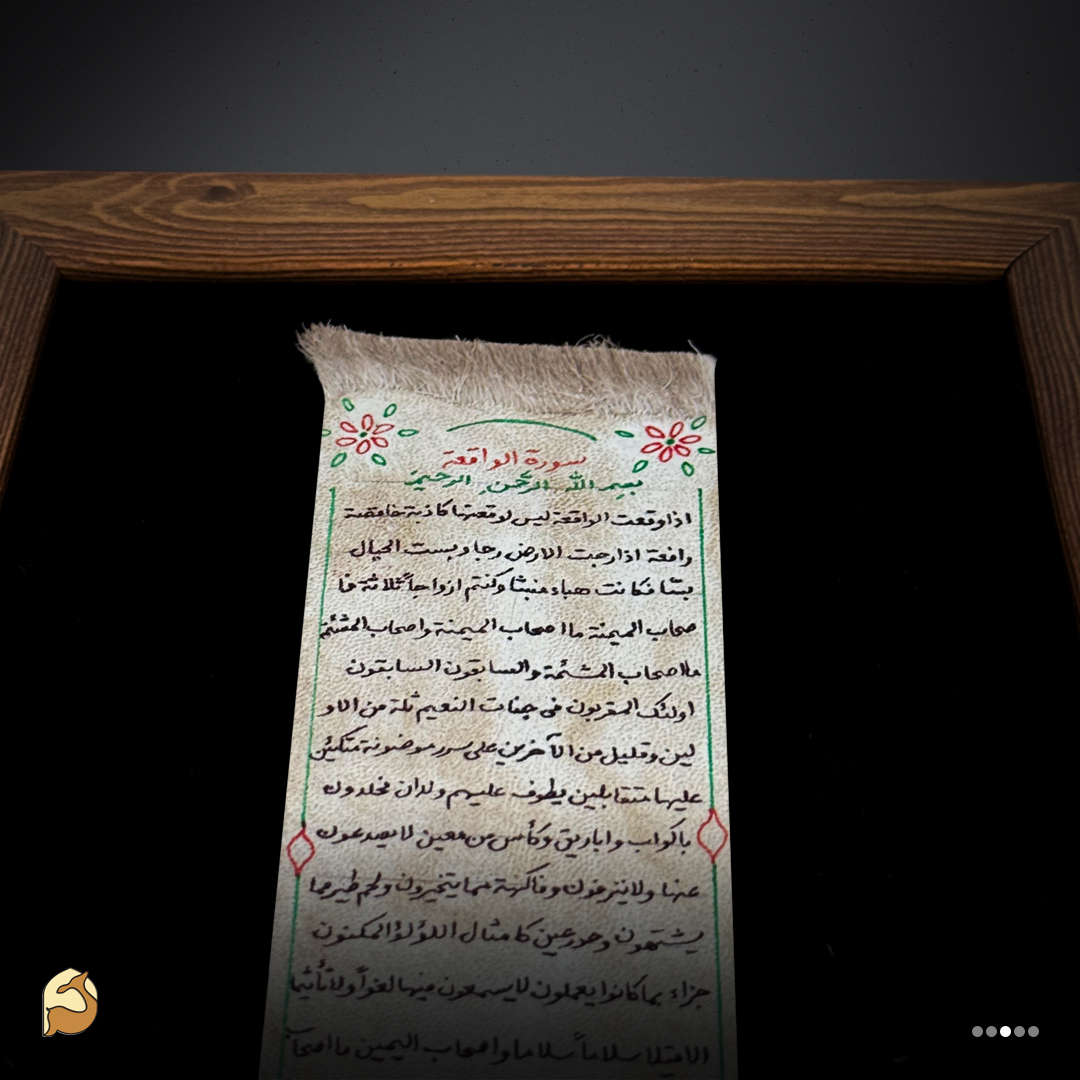 سورة الواقعة
بسم الله الرحمن الرحيم
اذا وقعت الواقعة ليس لوقعتها كاذبة خافضة
رافعة اذا رجت الارض رجا وبست الجبال
بسّا فكانت هباء منبثا وكنتم ازواجاً ثلاثة فا
صحاب الميمنة ما اصحاب الميمنة واصحاب المشئمة
ما اصحاب المشئمة والسابقون السابقون
اولئك المقربون في جنات النعيم ثلة من الاو
لين وقليل من الآخرين على سرر موضونة متكئين
عليها متقابلين يطوف عليهم ولدان مخلدون
باكواب واباريق وكأس من معين لا يصدعون
عنها ولا ينزفون وفاكهة مما يتخيرون ولحم طير مما
يشتهون وحور عين كامثال اللؤلؤ المكنون
جزاء بما كانوا يعملون لا يسمعون فيها لغواً ولا تأثيما
الا قيلا سلاماً سلاما واصحاب اليمين ما اصحاب